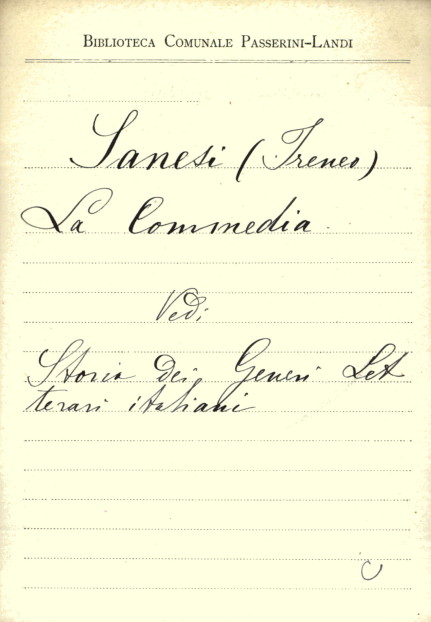 BIBLIOTECA COMUNALE PASSERINI-LANDI
Sanesi (Ireneo)
La Commedia
Vedi
Storia dei Generi Let
terari italiani
C